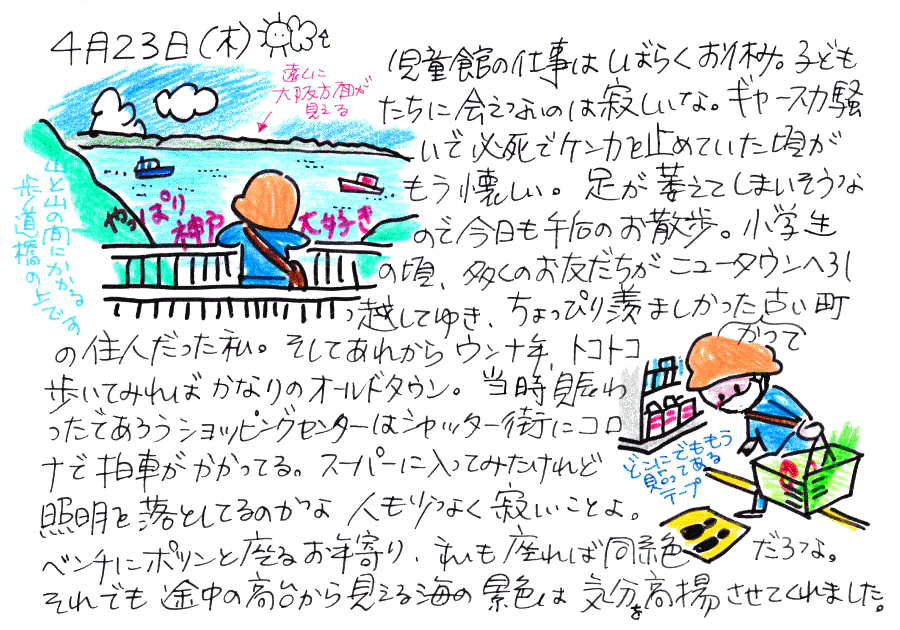 4月23日(木)
遠くに
大阪方面が
見える
山と山の間にかかる
歩道橋の上です
やっぱり
神戸
大好き
児童館の仕事はしばらくお休み。子ども
たちに会えないのは寂しいな。ギャースカ騒
いで必死でケンカを止めていた頃が
もう懐しい。足が萎えてしまいそうな
ので今日も午后のお散歩。小学生
の頃、多くのお友だちがニュータウンへ引
っ越してゆき、ちょっぴり羨ましかった古い町
かつて
の住人だった私。そしてあれからウン十年、トコトコ
歩いてみればかなりのオールドタウン。当時賑わ
ったであろうショッピングセンターはシャッター街にコロ
ナで拍車がかかってる。スーパーに入ってみたけれど
照明を落としてるのかな 人も少なく寂いことよ。
ベンチにポツンと座るお年寄り、私も座れば同系色だろうな。
それでも途中の高台から見える海の景色は気分を高揚させてくれました。
どこにでももう
貼ってある
テープ